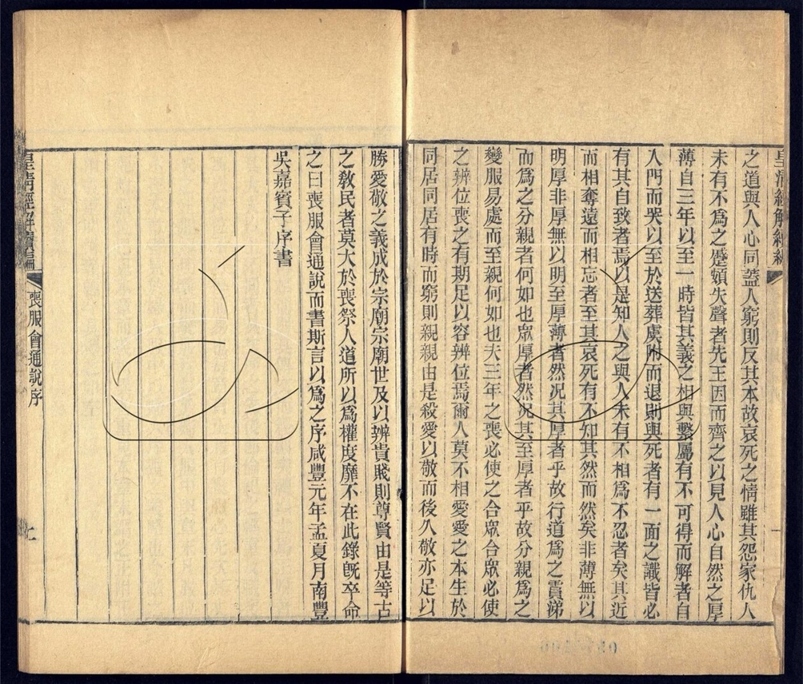 皇清經解續編
之道與人心同蓋人窮則反其本故哀死之情雖其怨家仇人
未有不爲之蹙頞失聲者先王因而齊之以見人心自然之厚
薄自三年以至一時皆其義之相與繫屬有不可得而解者自
入門而哭以至於送葬虞附而退則與死者有一面之識皆必
有其自致者焉以是知人之與人未有不相爲不忍者矣其近
而相奪遠而相忘者至其哀死有不知其然而然矣非薄無以
明厚非厚無以明至厚薄者然況其厚者乎故行道爲之賈涕
而爲之分親者何如也眾厚者然況其至厚者乎故分親爲之
變服易處而至親何如也夫三年之喪必使之合眾合眾必使
之辨位喪之有期足以容辨位焉爾人莫不相愛愛之本生於
同居同居有時而窮則親親由是殺愛以敬而後久敬亦足以
勝愛敬之義成於宗廟宗廟世及以辨貴賤則尊賢由是等古
之敎民者莫大於喪祭人道所以爲權度靡不在此錄旣卒命
之曰喪服會通說而書斯言以爲之序咸豐元年孟夏月南豐
吳嘉賓子序書
皇清經解續編
喪服會通說序